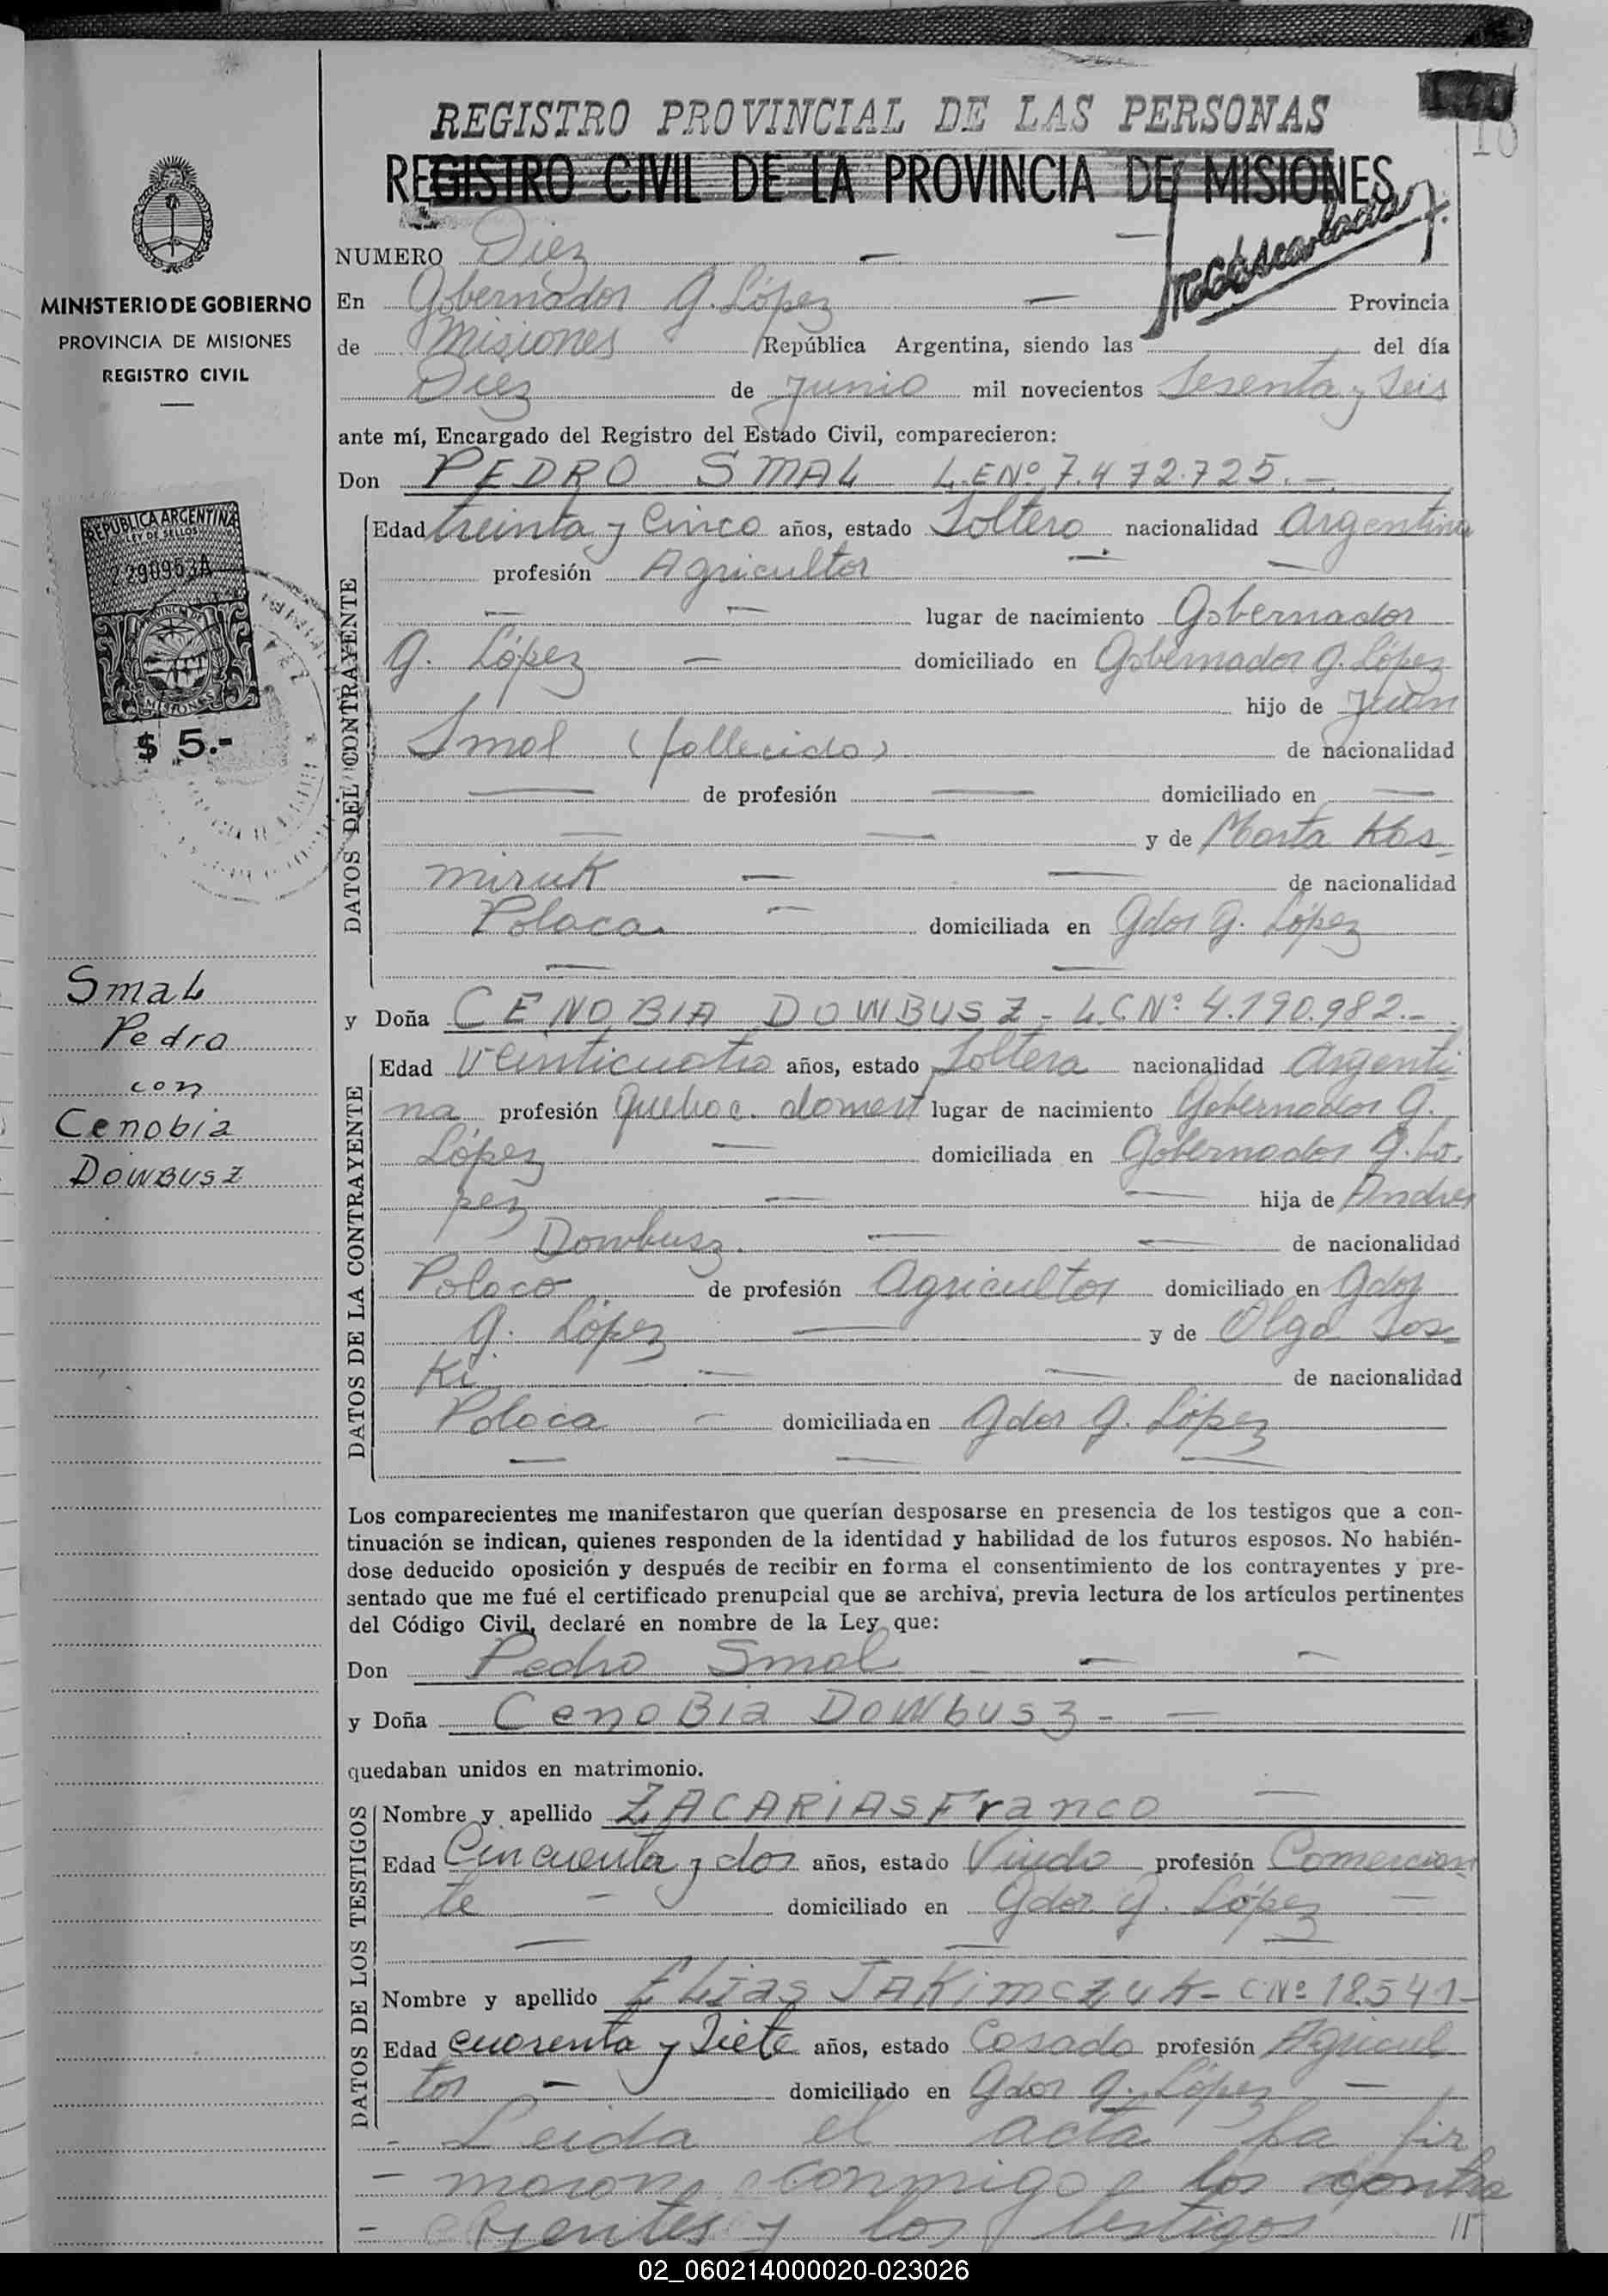 REGISTRO PROVINCIAL DE LAS PERSONAS
REGISTRO CIVIL DE LA PROVINCIA DE MISIONES
10
MINISTERIO DE GOBIERNO
PROVINCIA DE MISIONES
REGISTRO CIVIL
REPUBLICA ARGENTINA
LEY DE SELLOS
2290963A
PROVINCIA DE
MISIONES
$ 5.-
Smal
Pedro
con
Cenobia
Dowbusz
NUMERO Diez
En Gobernador G. López Provincia
de Misiones República Argentina, siendo las del día
Diez de Junio mil novecientos Sesenta y Seis
ante mí, Encargado del Registro del Estado Civil, comparecieron:
Don PEDRO SMAL L.E Nº 7.472.725.-
DATOS DEL CONTRAYENTE
Edad treinta y Cinco años, estado Soltero nacionalidad Argentina
profesión Agricultor
lugar de nacimiento Gobernador
G. López domiciliado en Gobernador G. López
hijo de Juan
Smal (fallecido) de nacionalidad
de profesión domiciliado en
y de Marta Kos-
miruk de nacionalidad
Polaca domiciliada en Gdor G. López
y Doña CENOBIA DOWBUSZ - L.C Nº 4.190.982.-
DATOS DE LA CONTRAYENTE
Edad Veinticuatro años, estado Soltera nacionalidad Argenti-
na profesión Quehac. domest lugar de nacimiento Gobernador G.
López domiciliada en Gobernador G. Ló-
pez hija de Andres
Dowbusz. de nacionalidad
Polaco de profesión Agricultor domiciliado en Gdor
G. López y de Olga Sos-
ki de nacionalidad
Polaca domiciliada en Gdor G. López
Los comparecientes me manifestaron que querían desposarse en presencia de los testigos que a con-
tinuación se indican, quienes responden de la identidad y habilidad de los futuros esposos. No habién-
dose deducido oposición y después de recibir en forma el consentimiento de los contrayentes y pre-
sentado que me fué el certificado prenupcial que se archiva, previa lectura de los artículos pertinentes
del Código Civil, declaré en nombre de la Ley que:
Don Pedro Smal
y Doña Cenobia Dowbusz -
quedaban unidos en matrimonio.
DATOS DE LOS TESTIGOS
Nombre y apellido ZACARIAS Franco
Edad Cincuenta y dos años, estado Viudo profesión Comercian
te domiciliado en Gdor G. López
Nombre y apellido Elias Jakimczuk - C Nº 18.541-
Edad cuarenta y Siete años, estado Casado profesión Agricul
tor domiciliado en Gdor G. López
- Leida el acta la fir
- maron conmigo los contra
- yentes y los testigos
02_060214000020-023026